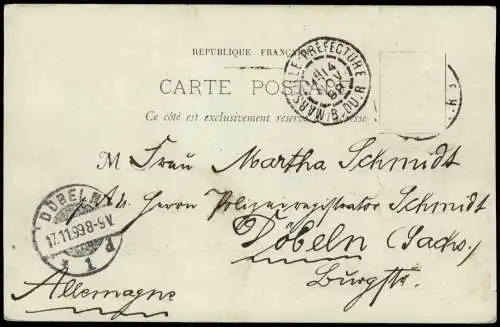 RÉPUBLIQUE FRANÇ
CARTE POSTA
Ce côté est exclusivement réservé esse
MARSEILLE-PRÉFECTURE
14
NOV
99
B. DU R.
M Frau Martha Schmidt
Herrn Polizeiregistrator Schmidt
Döbeln (Sachs.)
Burgstr.
Allemagne
DÖBELN
17.11.99 8-9V.
* 1 d